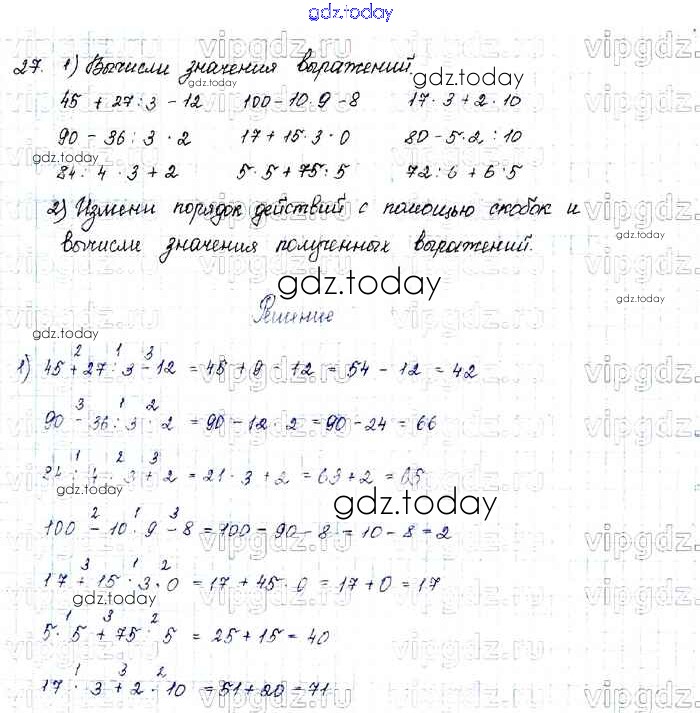 gdz.today
27. 1) Вычисли значения выражений.
gdz.today
45 + 27 : 3 - 12 100 - 10 · 9 - 8 17 · 3 + 2 · 10
90 - 36 : 3 · 2 17 + 15 · 3 · 0 80 - 5 · 2 : 10
gdz.today gdz.today
84 : 4 · 3 + 2 5 · 5 + 75 : 5 72 : 6 + 6 · 5
2) Измени порядок действий с помощью скобок и
вычисли значения полученных выражений.
gdz.today
gdz.today
Решение
gdz.today
2 1 3
1) 45 + 27 : 3 - 12 = 45 + 9 - 12 = 54 - 12 = 42
3 1 2
90 - 36 : 3 · 2 = 90 - 12 · 2 = 90 - 24 = 66
1 2 3
84 : 4 · 3 + 2 = 21 · 3 + 2 = 63 + 2 = 65
gdz.today
gdz.today
2 1 3
100 - 10 · 9 - 8 = 100 - 90 - 8 = 10 - 8 = 2
3 1 2
17 + 15 · 3 · 0 = 17 + 45 · 0 = 17 + 0 = 17
gdz.today
1 3 2
5 · 5 + 75 : 5 = 25 + 15 = 40
1 3 2
17 · 3 + 2 · 10 = 51 + 20 = 71